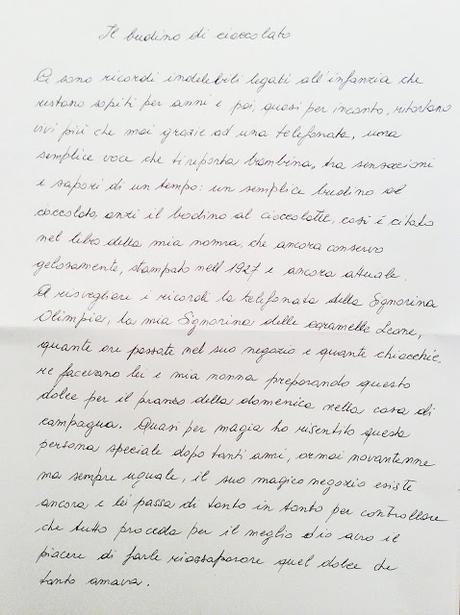 Il budino di cioccolato
Ci sono ricordi indelebili legati all'infanzia che
restano sopiti per anni e poi, quasi per incanto, ritornano
vivi più che mai grazie ad una telefonata, una
semplice voce che ti riporta bambina, tra sensazioni
e sapori di un tempo: un semplice budino al
cioccolato, anzi il bodino al cioccolatte, così è citato
nel libro della mia nonna, che ancora conservo
gelosamente, stampato nell'1927 e ancora attuale.
A risvegliare i ricordi la telefonata della Signorina
Olimpia, la mia Signorina delle caramelle Leone,
quante ore passate nel suo negozio e quante chiacchie-
re facevano lei e mia nonna preparando questo
dolce per il pranzo della domenica nella casa di
campagna. Quasi per magia ho risentito questa
persona speciale dopo tanti anni, ormai novantenne
ma sempre uguale, il suo magico negozio esiste
ancora e lei passa di tanto in tanto per controllare
che tutto proceda per il meglio ed io avrò il
piacere di farle riassaporare quel dolce che
tanto amava.